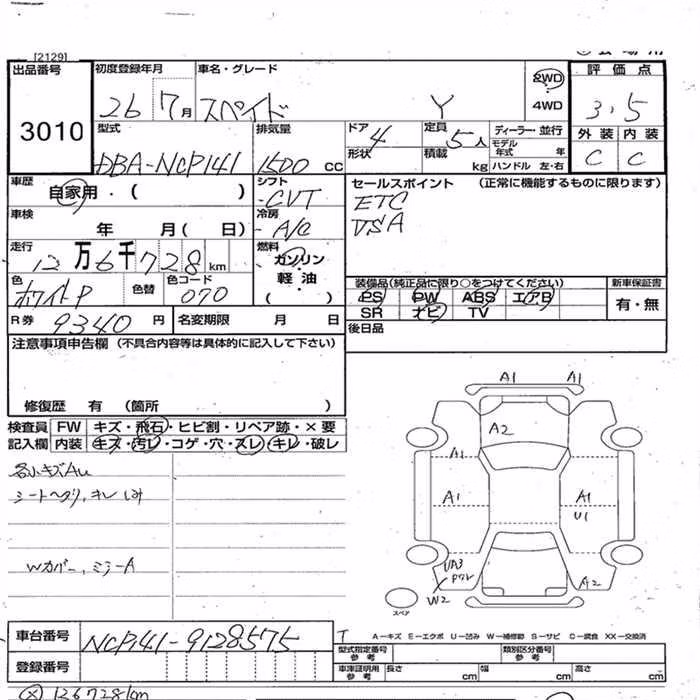 [2129]
出品番号 初度登録年月 車名・グレード 2WD 評価点
3010 26 7月 スペイド Y 4WD 3.5
型式 排気量 ドア 定員 ディーラー・並行 外装 内装
DBA-NCP141 1500 CC 4 5人 モデル年式 年 C C
形状 積載 kg ハンドル 左・右
車歴 自家用・( ) シフト CVT セールスポイント (正常に機能するものに限ります)
車検 年 月( 日) 冷房 A/C ETC
走行 12万6千728km 燃料 ガソリン 軽油 ( )
色 ホワイトP 色替 色コード 070
装備品(純正品に限り○をつけてください) 新車保証書
PS PW ABS エアB 有・無
SR ナビ TV
R券 9340円 名変期限 月 日 後日品
注意事項申告欄 (不具合内容等は具体的に記入して下さい)
修復歴 有 (箇所 )
検査員 FW キズ・飛石・ヒビ割・リペア跡・×要
記入欄 内装 キズ・汚レ・コゲ・穴・スレ・キレ・破レ
各小キズAU
シートヘタリ、キレ シミ
Wカバー、ミラーA
A1 A1
A2
A1 A1
A1 A1
U1
UA3
ワレ
W2 A2
スペア
A−キズ E−エクボ U−凹み W−補修跡 S−サビ C−腐食 XX−交換済
車台番号 NCP141-9128575
登録番号
型式指定番号 参考 類別区分番号 参考
車庫証明用 参考 長さ cm 幅 cm 高さ cm
126728km